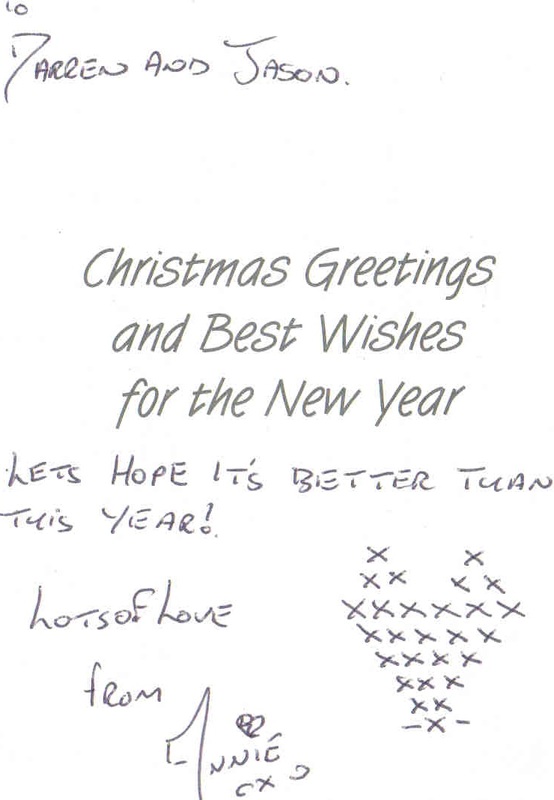 to
Darren and Jason.
Christmas Greetings
and Best Wishes
for the New Year
Lets Hope it's Better Than
This Year!
Lots of Love
x x
x x x x
x x x x x x
x x x x x
x x x x
x x x
x x
- x -
from
Annie